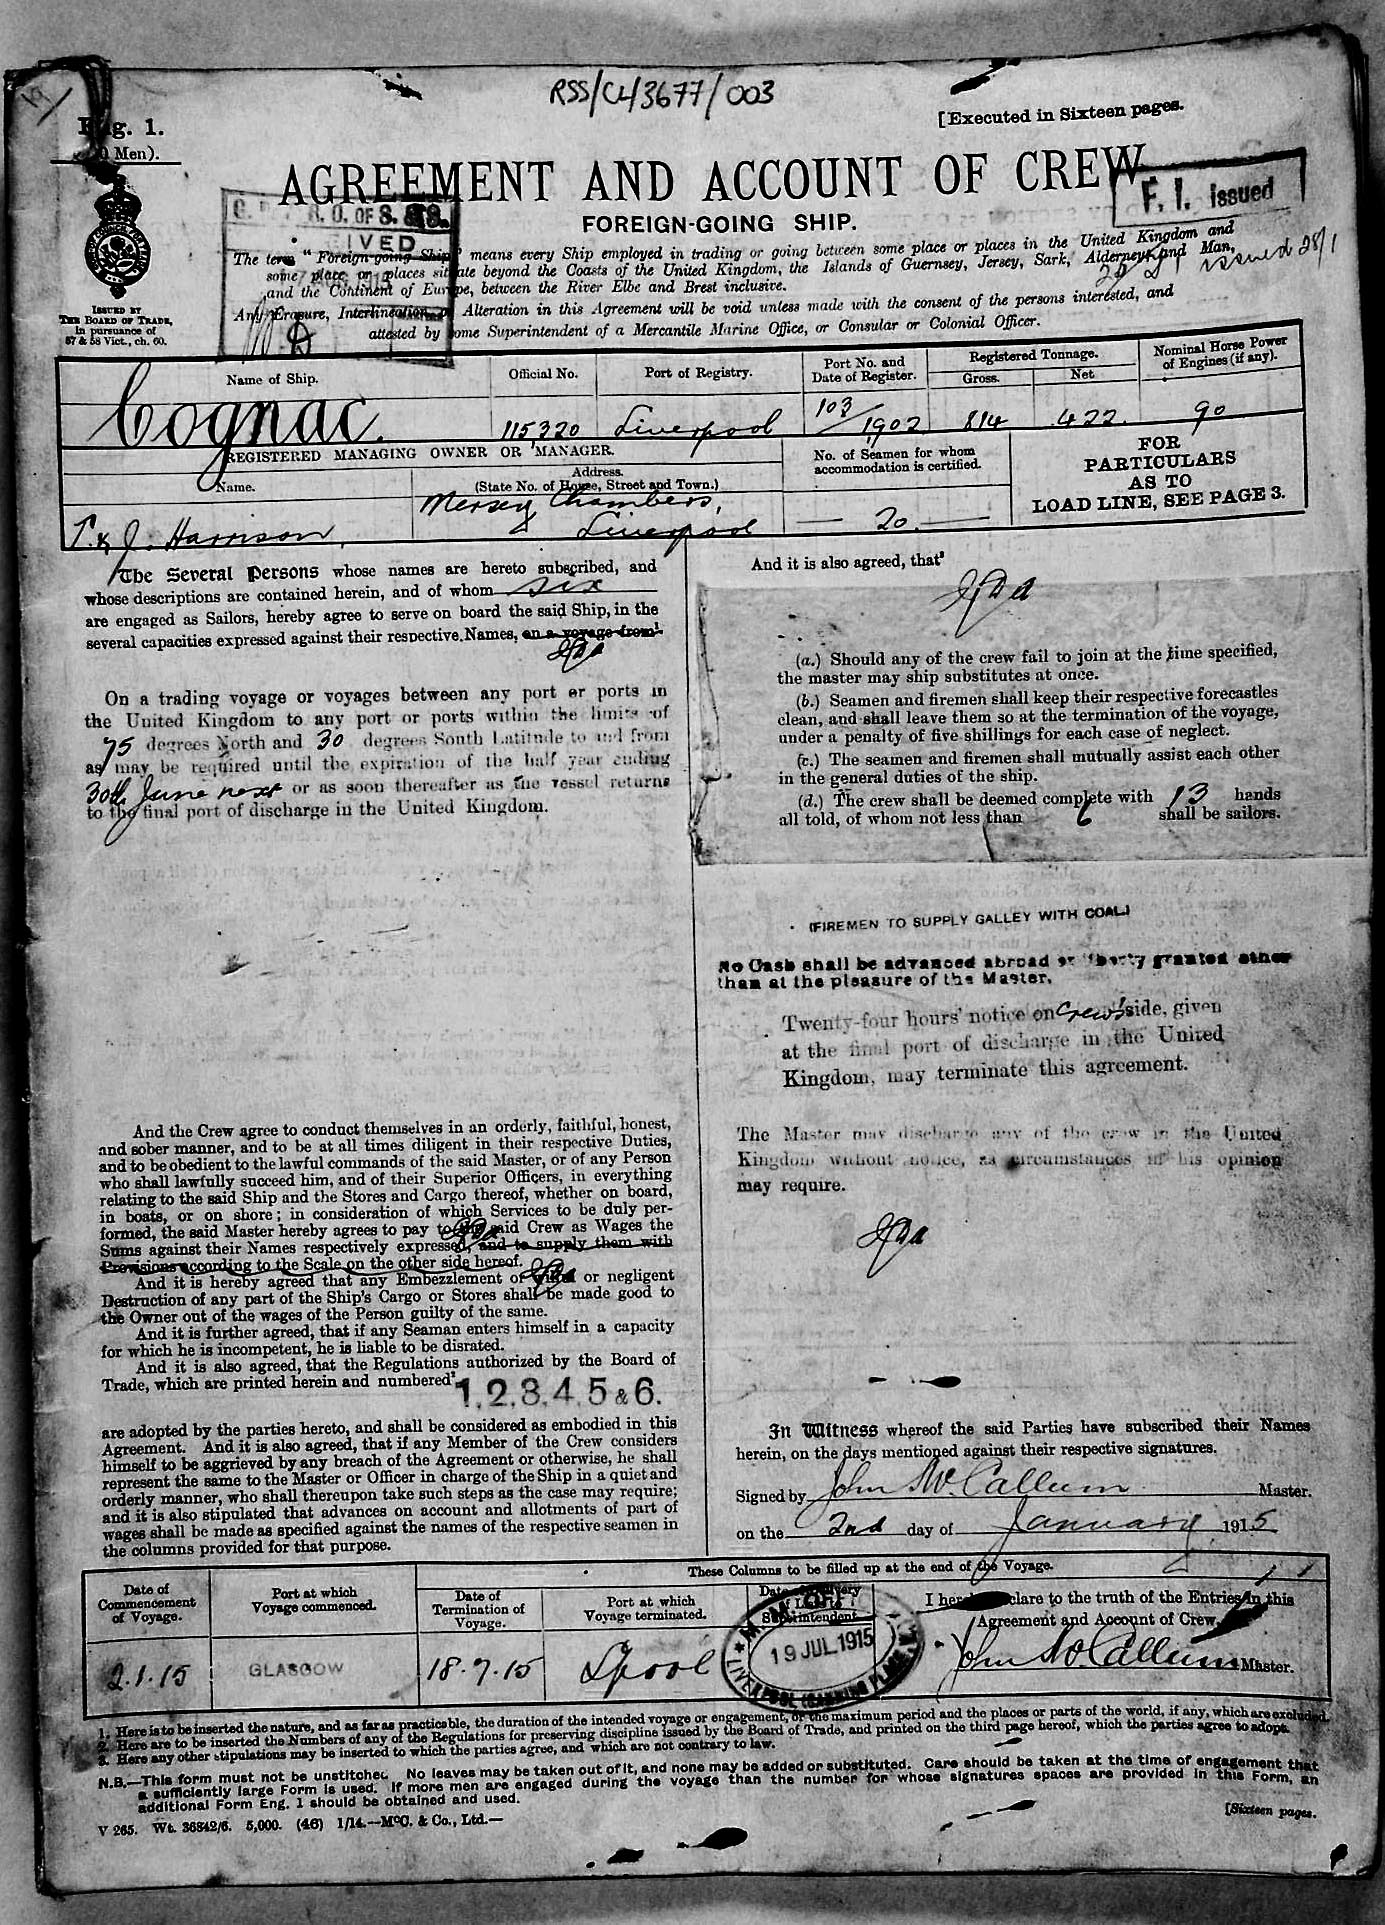 RSS/CL/3677/003
[Executed in Sixteen pages.
Eng. 1.
Men).
AGREEMENT AND ACCOUNT OF CREW.
F. I. issued
FOREIGN-GOING SHIP.
R. O. OF S. & S.
IVED
The term "Foreign-going Ship" means every Ship employed in trading or going between some place or places in the United Kingdom and
some place or places situate beyond the Coasts of the United Kingdom, the Islands of Guernsey, Jersey, Sark, Alderney, and Man,
and the Continent of Europe, between the River Elbe and Brest inclusive.
issued 28/1
Any Erasure, Interlineation, or Alteration in this Agreement will be void unless made with the consent of the persons interested, and
attested by some Superintendent of a Mercantile Marine Office, or Consular or Colonial Officer.
ISSUED BY
THE BOARD OF TRADE,
in pursuance of
57 & 58 Vict., ch. 60.
Name of Ship.
Official No.
Port of Registry.
Port No. and
Date of Register.
Registered Tonnage.
Gross.
Net
Nominal Horse Power
of Engines (if any).
Cognac.
115320
Liverpool
103/1902
814
422
90
REGISTERED MANAGING OWNER OR MANAGER.
Name.
Address.
(State No. of House, Street and Town.)
No. of Seamen for whom
accommodation is certified.
FOR
PARTICULARS
AS TO
LOAD LINE, SEE PAGE 3.
T. & J. Harrison,
Mersey Chambers,
Liverpool
20.
The Several Persons whose names are hereto subscribed, and
whose descriptions are contained herein, and of whom six
are engaged as Sailors, hereby agree to serve on board the said Ship, in the
several capacities expressed against their respective Names, on a voyage from¹
On a trading voyage or voyages between any port or ports in
the United Kingdom to any port or ports within the limits of
75 degrees North and 30 degrees South Latitude to and from
as may be required until the expiration of the half year ending
30th June next or as soon thereafter as the vessel returns
to the final port of discharge in the United Kingdom.
And the Crew agree to conduct themselves in an orderly, faithful, honest,
and sober manner, and to be at all times diligent in their respective Duties,
and to be obedient to the lawful commands of the said Master, or of any Person
who shall lawfully succeed him, and of their Superior Officers, in everything
relating to the said Ship and the Stores and Cargo thereof, whether on board,
in boats, or on shore; in consideration of which Services to be duly per-
formed, the said Master hereby agrees to pay to the said Crew as Wages the
Sums against their Names respectively expressed, and to supply them with
Provisions according to the Scale on the other side hereof.
And it is hereby agreed that any Embezzlement or wilful or negligent
Destruction of any part of the Ship's Cargo or Stores shall be made good to
the Owner out of the wages of the Person guilty of the same.
And it is further agreed, that if any Seaman enters himself in a capacity
for which he is incompetent, he is liable to be disrated.
And it is also agreed, that the Regulations authorized by the Board of
Trade, which are printed herein and numbered² 1, 2, 3, 4, 5 & 6.
are adopted by the parties hereto, and shall be considered as embodied in this
Agreement. And it is also agreed, that if any Member of the Crew considers
himself to be aggrieved by any breach of the Agreement or otherwise, he shall
represent the same to the Master or Officer in charge of the Ship in a quiet and
orderly manner, who shall thereupon take such steps as the case may require;
and it is also stipulated that advances on account and allotments of part of
wages shall be made as specified against the names of the respective seamen in
the columns provided for that purpose.
And it is also agreed, that³
(a.) Should any of the crew fail to join at the time specified,
the master may ship substitutes at once.
(b.) Seamen and firemen shall keep their respective forecastles
clean, and shall leave them so at the termination of the voyage,
under a penalty of five shillings for each case of neglect.
(c.) The seamen and firemen shall mutually assist each other
in the general duties of the ship.
(d.) The crew shall be deemed complete with 13 hands
all told, of whom not less than 6 shall be sailors.
(FIREMEN TO SUPPLY GALLEY WITH COAL.)
No Cash shall be advanced abroad or liberty granted other
than at the pleasure of the Master.
Twenty-four hours' notice on crew's side, given
at the final port of discharge in the United
Kingdom, may terminate this agreement.
The Master may discharge any of the crew in the United
Kingdom without notice, as circumstances in his opinion
may require.
In Witness whereof the said Parties have subscribed their Names
herein, on the days mentioned against their respective signatures.
Signed by John McCallum Master.
on the 2nd day of January 1915
These Columns to be filled up at the end of the Voyage.
Date of
Commencement
of Voyage.
Port at which
Voyage commenced.
Date of
Termination of
Voyage.
Port at which
Voyage terminated.
Date of Delivery
of Lists to
Superintendent
I hereby declare to the truth of the Entries in this
Agreement and Account of Crew,
2.1.15
GLASGOW
18.7.15
L'pool
19 JUL 1915
LIVERPOOL (CANNING PLACE)
John McCallum Master.
1. Here is to be inserted the nature, and as far as practicable, the duration of the intended voyage or engagement, or the maximum period and the places or parts of the world, if any, which are excluded.
2. Here are to be inserted the Numbers of any of the Regulations for preserving discipline issued by the Board of Trade, and printed on the third page hereof, which the parties agree to adopt.
3. Here any other stipulations may be inserted to which the parties agree, and which are not contrary to law.
N.B.—This form must not be unstitched. No leaves may be taken out of it, and none may be added or substituted. Care should be taken at the time of engagement that
a sufficiently large Form is used. If more men are engaged during the voyage than the number for whose signatures spaces are provided in this Form, an
additional Form Eng. 1 should be obtained and used.
[Sixteen pages.
V 265. Wt. 36842/6. 5,000. (46) 1/14.—McC. & Co., Ltd.—